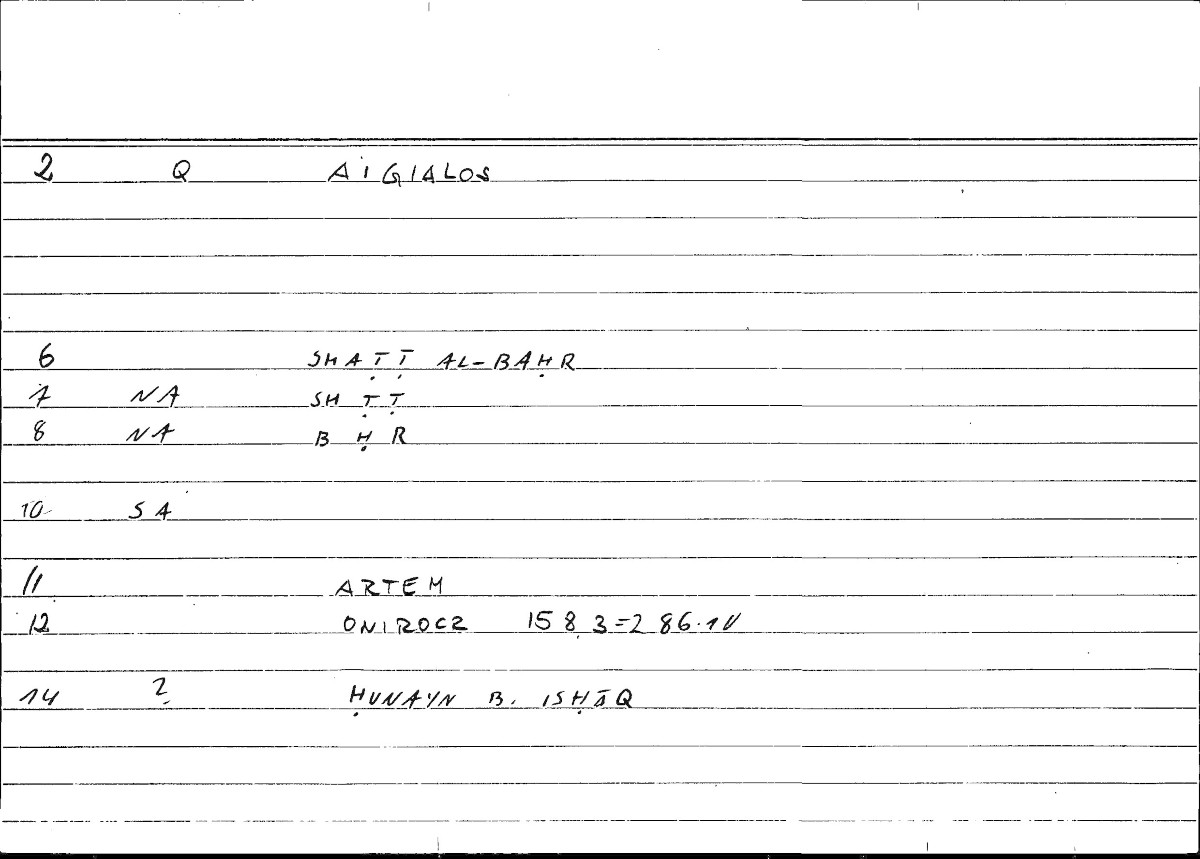 2 Q AIGIALOS
6 SHAṬṬ AL-BAḤR
7 NA SH ṬṬ
8 NA B Ḥ R
10 SA
11 ARTEM
12 ONIROCR 158,3=286.10
14 ? ḤUNAYN B. ISḤĀQ